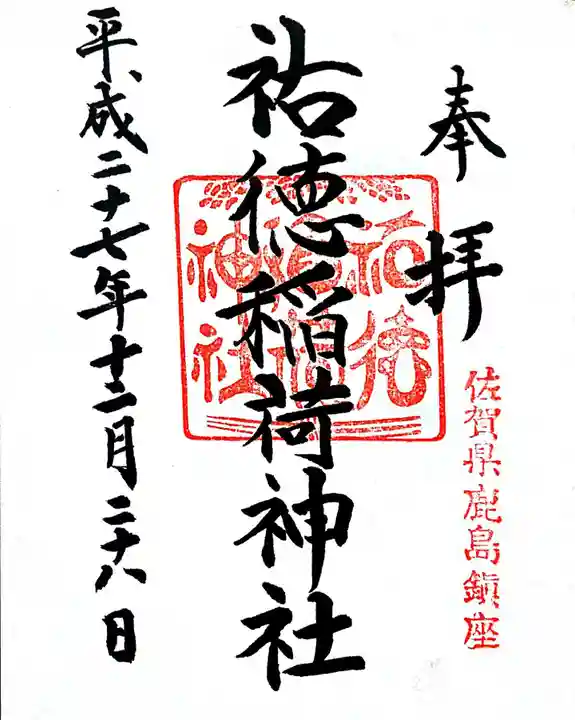 奉拝
佐賀県鹿島鎮座
祐徳稲荷神社
祐徳稲荷神社
平成二十七年十二月二十八日